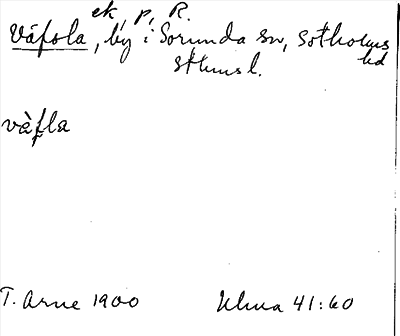 ek, p, R.
Väfsla, by i Sorunda sn, Sotholms
hd
Sthmsl.
vàfla
T. Arne 1900 Uhma 41:60